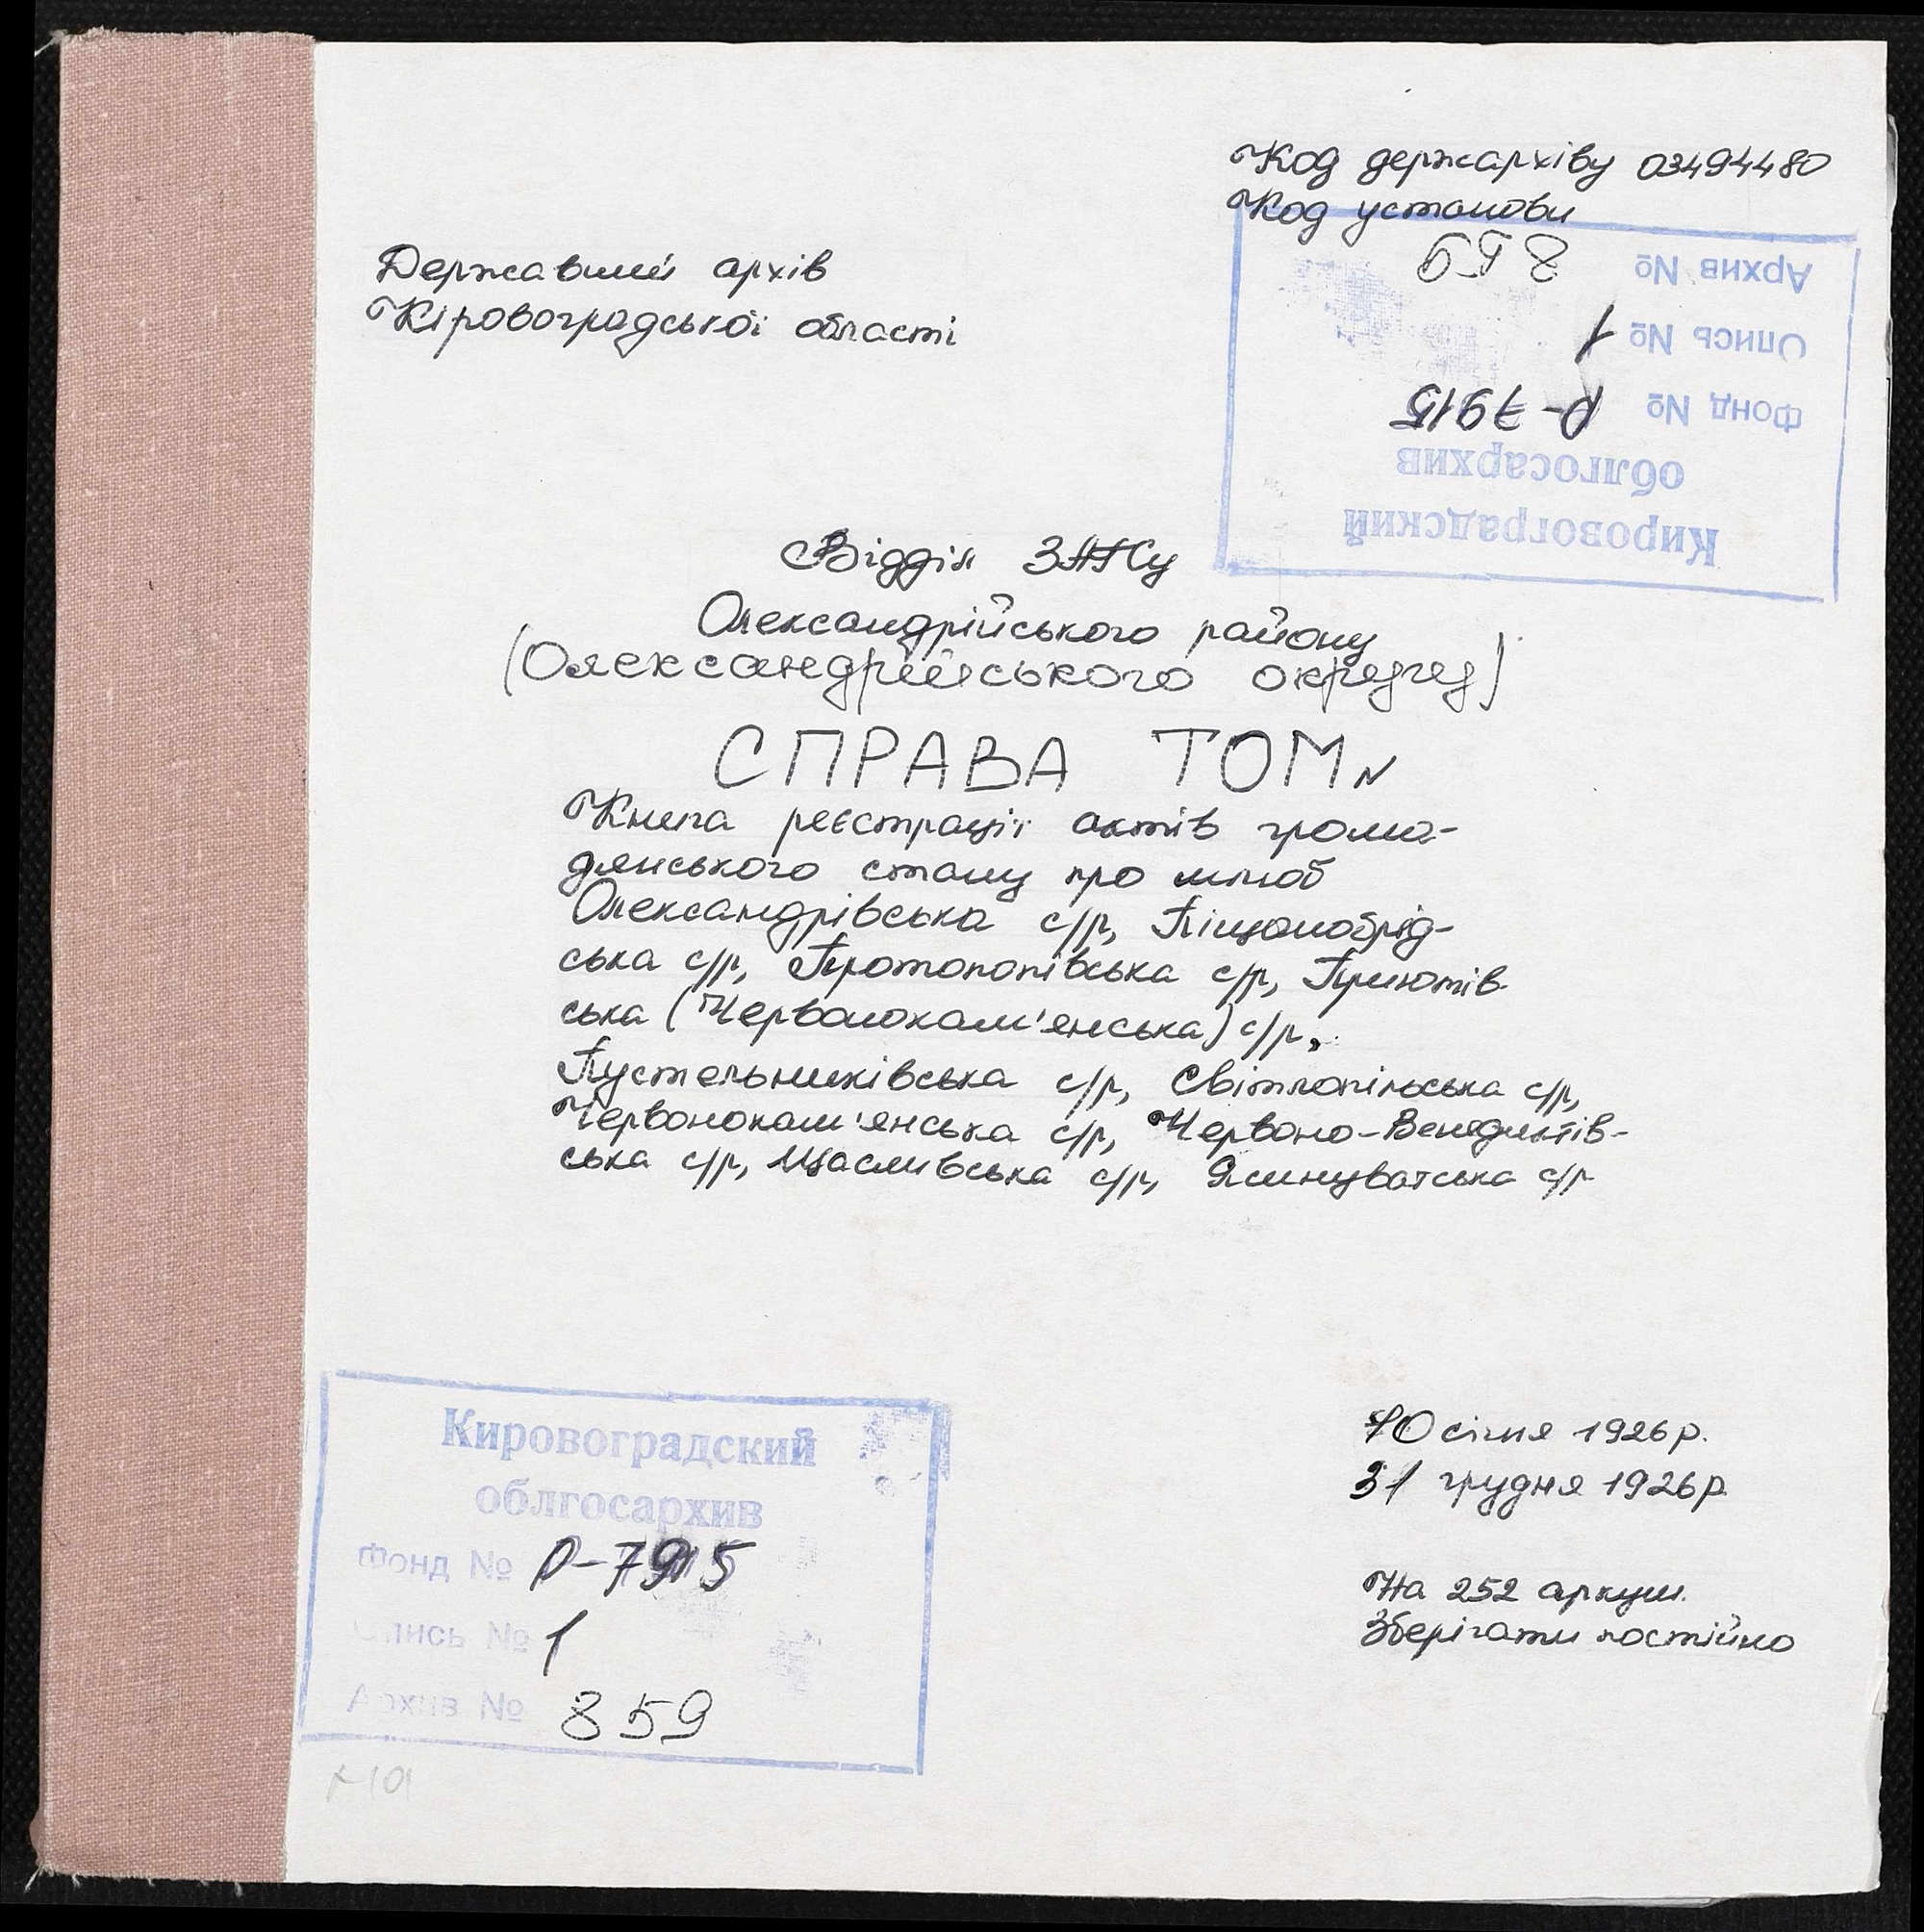 Код держархіву 03494480
Код установи
Державний архів
Кіровоградської області
Кировоградский
облгосархив
Фонд № Р-7915
Опись № 1
Архив № 859
Відділ ЗАГСу
Олександрійського району
(Олександрійського округу)
СПРАВА ТОМ N
Книга реєстрації актів грома-
дянського стану про шлюб
Олександрівська с/р, Піщанобрід-
ська с/р, Протопопівська с/р, Приютів
ська (Червонокам'янська) с/р,
Пустельниківська с/р, Світлопільська с/р,
Червонокам'янська с/р, Червоно-Венедиктів-
ська с/р, Щасливська с/р, Ясинуватська с/р
10 січня 1926 р.
31 грудня 1926 р.
На 252 аркуш.
Зберігати постійно
Кировоградский
облгосархив
Фонд № Р-7915
Опись № 1
Архив № 859